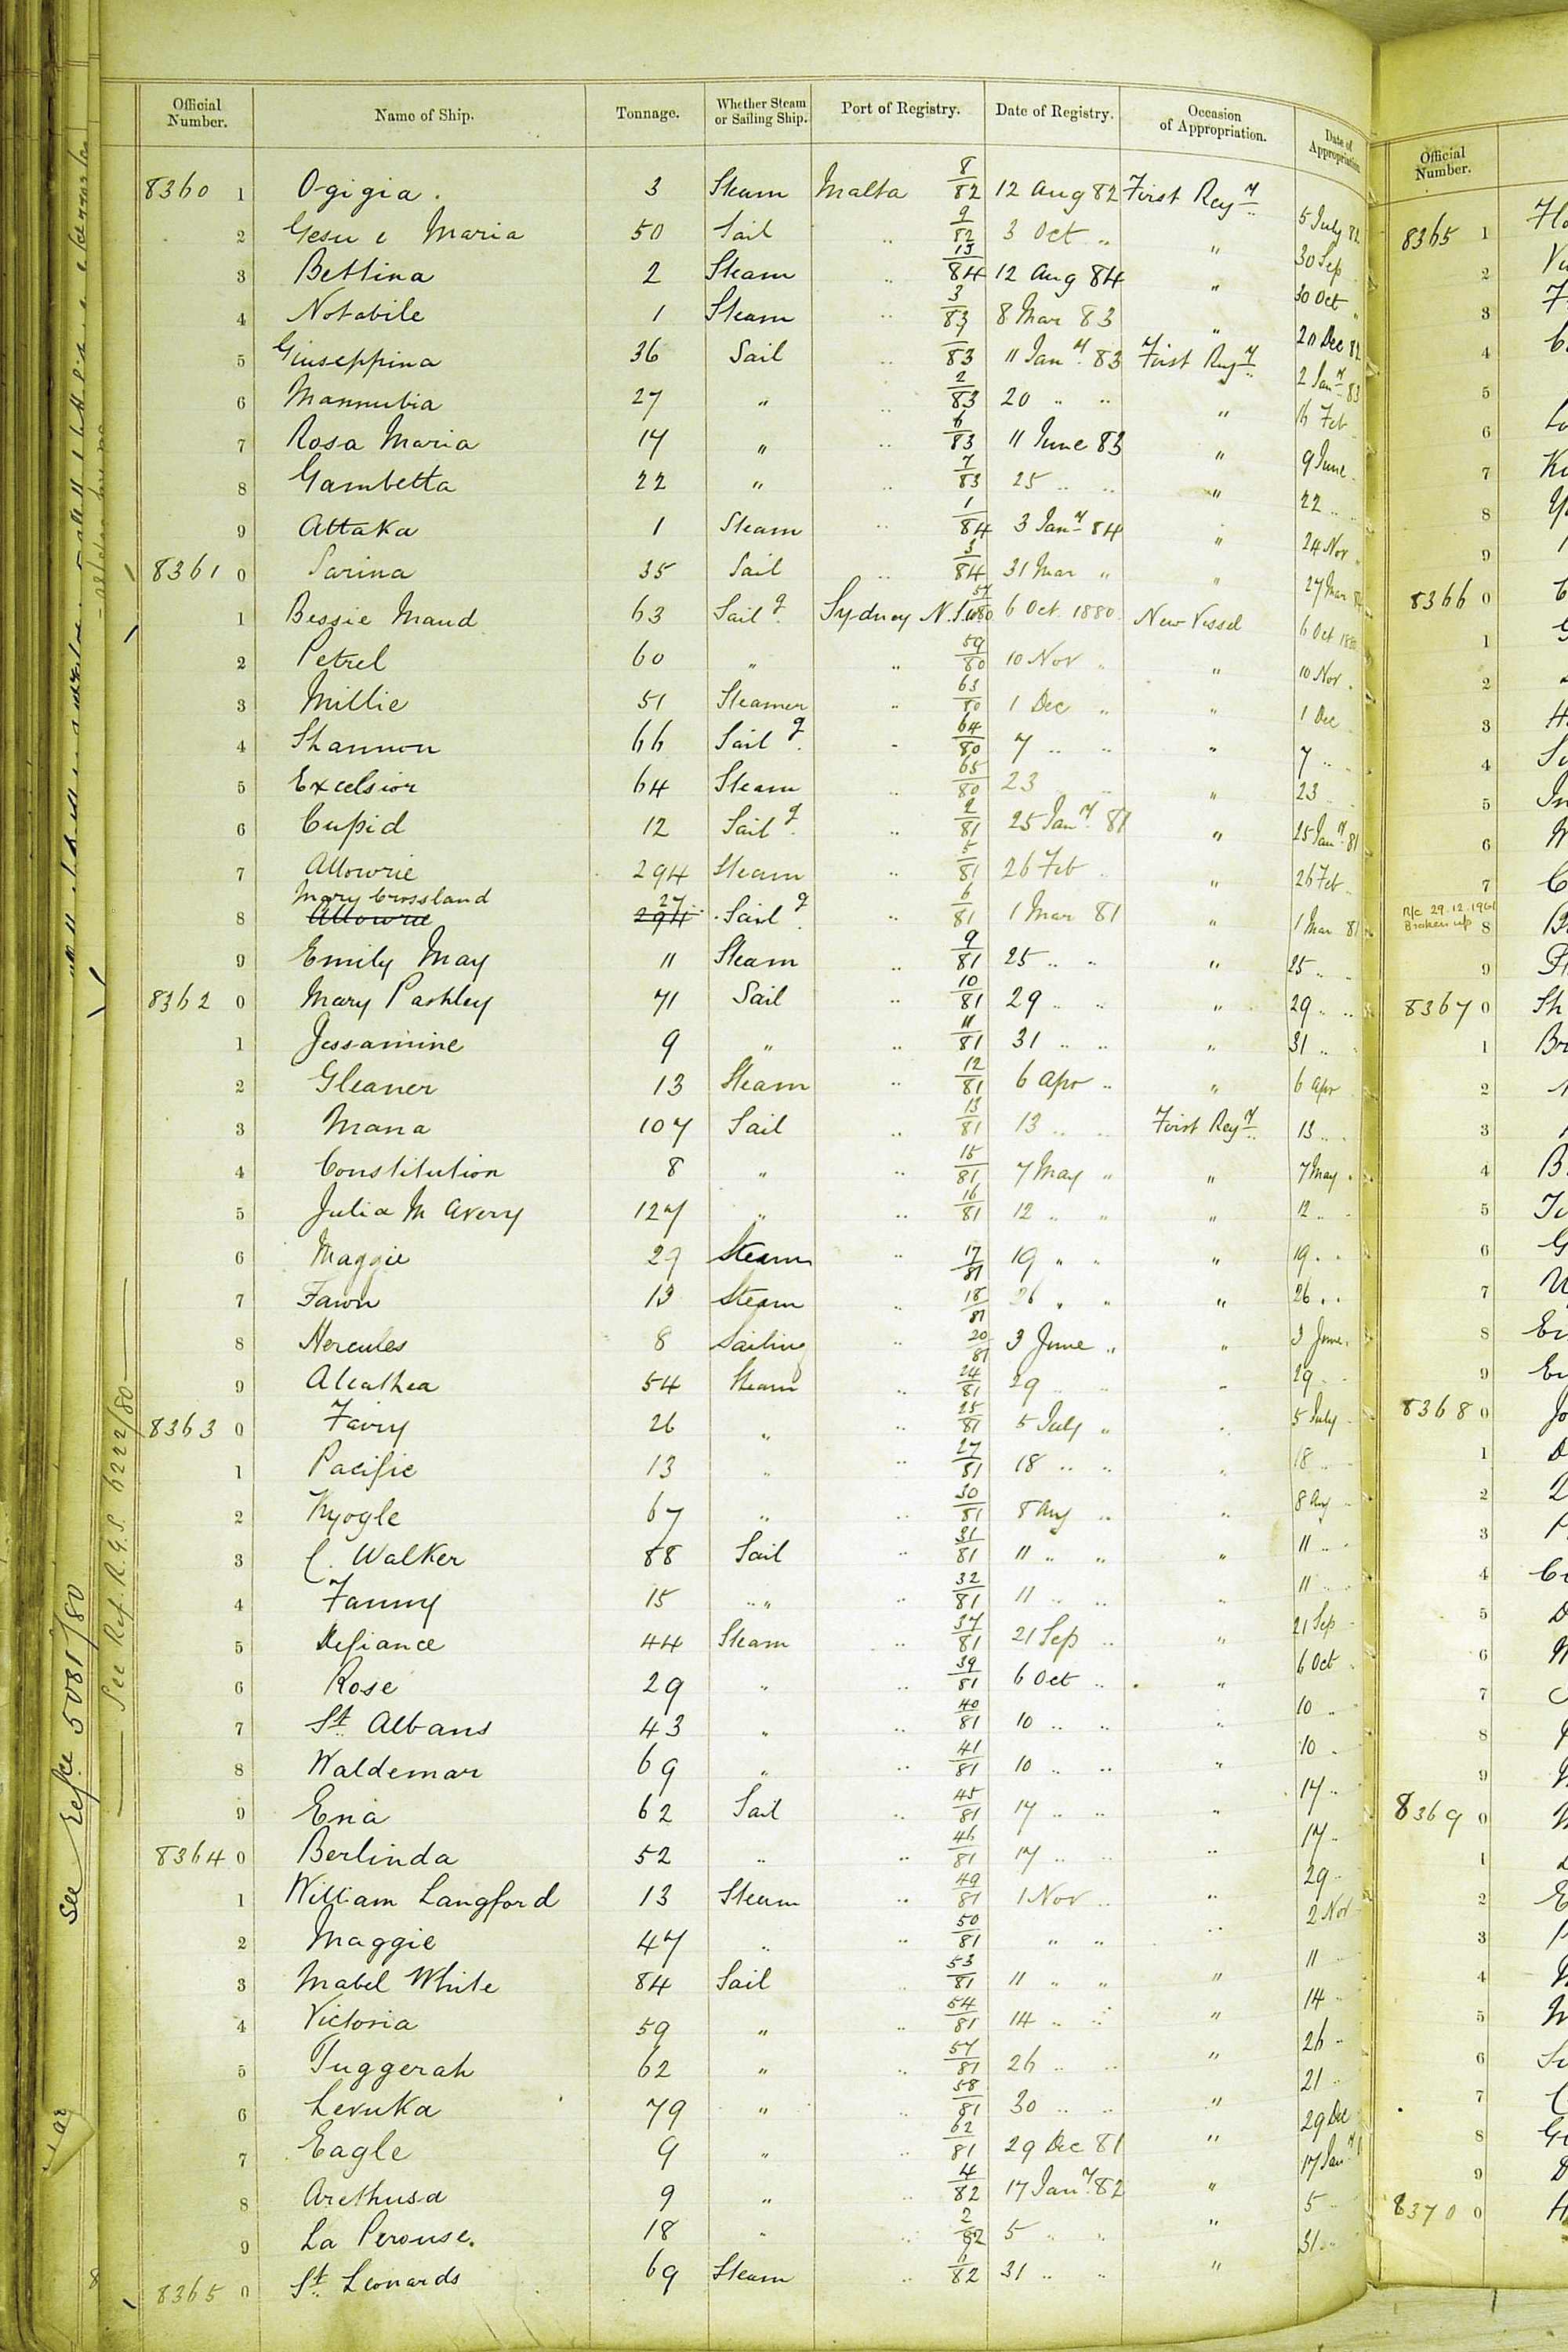 Official Number. Name of Ship. Tonnage. Whether Steam or Sailing Ship. Port of Registry. Date of Registry. Occasion of Appropriation. Date of Appropriation
8360 1 Ogigia. 3 Steam Malta 8/82 12 Aug 82 First Regy 5 July 82
2 Gesu e Maria 50 Sail .. 9/82 3 Oct .. " 30 Sep
3 Bettina 2 Steam .. 13/84 12 Aug 84 " 30 Oct "
4 Notabile 1 Steam .. 3/83 8 Mar 83 " 20 Dec 82
5 Giuseppina 36 Sail .. 1/83 11 Jany. 83 First Regy 2 Jany 83
6 Mannubia 27 " .. 2/83 20 .. .. " 16 Feb
7 Rosa Maria 17 " .. 6/83 11 June 83 " 9 June
8 Gambetta 22 " .. 7/83 25 .. .. " 22 ..
9 Attaka 1 Steam .. 1/84 3 Jany 84 " 24 Nov
8361 0 Sarina 35 Sail .. 3/84 31 Mar " " 27 Mar 84
1 Bessie Maud 63 Sailg. Sydney N.S.W 57/80 6 Oct 1880 New Vessel 6 Oct 1880
2 Petrel 60 " .. 59/80 10 Nov .. " 10 Nov .
3 Millie 51 Steamer .. 63/80 1 Dec .. " 1 Dec
4 Shannon 66 Sailg. .. 64/80 7 .. .. " 7 ..
5 Excelsior 64 Steam .. 65/80 23 .. " 23
6 Cupid 12 Sailg. .. 2/81 25 Jany. 81 " 25 Jany 81
7 Allowrie 294 Steam .. 5/81 26 Feb .. " 26 Feb
Mary Crossland 27
8 Allowrie 294 Sailg. .. 6/81 1 Mar 81 " 1 Mar 81
9 Emily May 11 Steam .. 9/81 25 .. .. " 25 ..
8362 0 Mary Pashley 71 Sail .. 10/81 29 .. .. " 29 ..
1 Jessamine 9 " .. 11/81 31 .. .. " 31 ..
2 Gleaner 13 Steam .. 12/81 6 Apr .. " 6 Apr
3 Mana 107 Sail .. 13/81 13 .. .. First Regy 13 ..
4 Constitution 8 " .. 15/81 7 May " " 7 May .
5 Julia M Avery 127 " .. 16/81 12 .. " " 12 ..
6 Maggie 27 Steam .. 17/81 19 " " " 19 . .
7 Fawn 13 Steam .. 18/81 26 " " " 26 . .
8 Hercules 8 Sailing .. 20/81 3 June .. " 3 June.
9 Aleathea 54 Steam .. 24/81 29 .. .. " 29 ..
8363 0 Fairy 26 " .. 25/81 5 July .. " 5 July
1 Pacific 13 " .. 27/81 18 .. .. " 18 ..
2 Kyogle 67 " .. 30/81 8 Aug .. " 8 Aug
3 C. Walker 88 Sail .. 31/81 11 .. .. " 11 ..
4 Fanny 15 .. " .. 32/81 11 .. .. " 11 ..
5 Defiance 44 Steam .. 37/81 21 Sep .. " 21 Sep
6 Rose 29 " .. 39/81 6 Oct .. " 6 Oct
7 St. Albans 43 " .. 40/81 10 .. .. " 10 ..
8 Waldemar 69 " .. 41/81 10 .. .. " 10 .
9 Ena 62 Sail .. 45/81 17 .. .. " 17 ..
8364 0 Berlinda 52 .. .. 46/81 17 .. .. " 17 ..
1 William Langford 13 Steam .. 49/81 1 Nov .. " 29 ..
2 Maggie 47 .. .. 50/81 " " .. 2 Nov
3 Mabel White 84 Sail .. 53/81 11 " " " 11
4 Victoria 59 " .. 54/81 14 .. .. " 14 ..
5 Tuggerah 62 " .. 57/81 26 .. .. " 26 ..
6 Levuka 79 " .. 58/81 30 .. .. " 21 ..
7 Eagle 9 " .. 62/81 29 Dec 81 " 29 Dec
8 Arethusa 9 " .. 4/82 17 Jany. 82 " 17 Jany
9 La Perouse. 18 " .. 2/82 5 .. .. " 5 ..
8365 0 St. Leonards 69 Steam .. 6/82 31 .. .. " 31 ..
See Refce 5081/80
See Ref. R.G.S. 6222/80
Official Number.
8365 1
2
3
4
5
6
7
8
9
8366 0
1
2
3
4
5
6
7
R/c 29.12.1961
Broken up 8
9
8367 0
1
2
3
4
5
6
7
8
9
8368 0
1
2
3
4
5
6
7
8
9
8369 0
1
2
3
4
5
6
7
8
9
8370 0